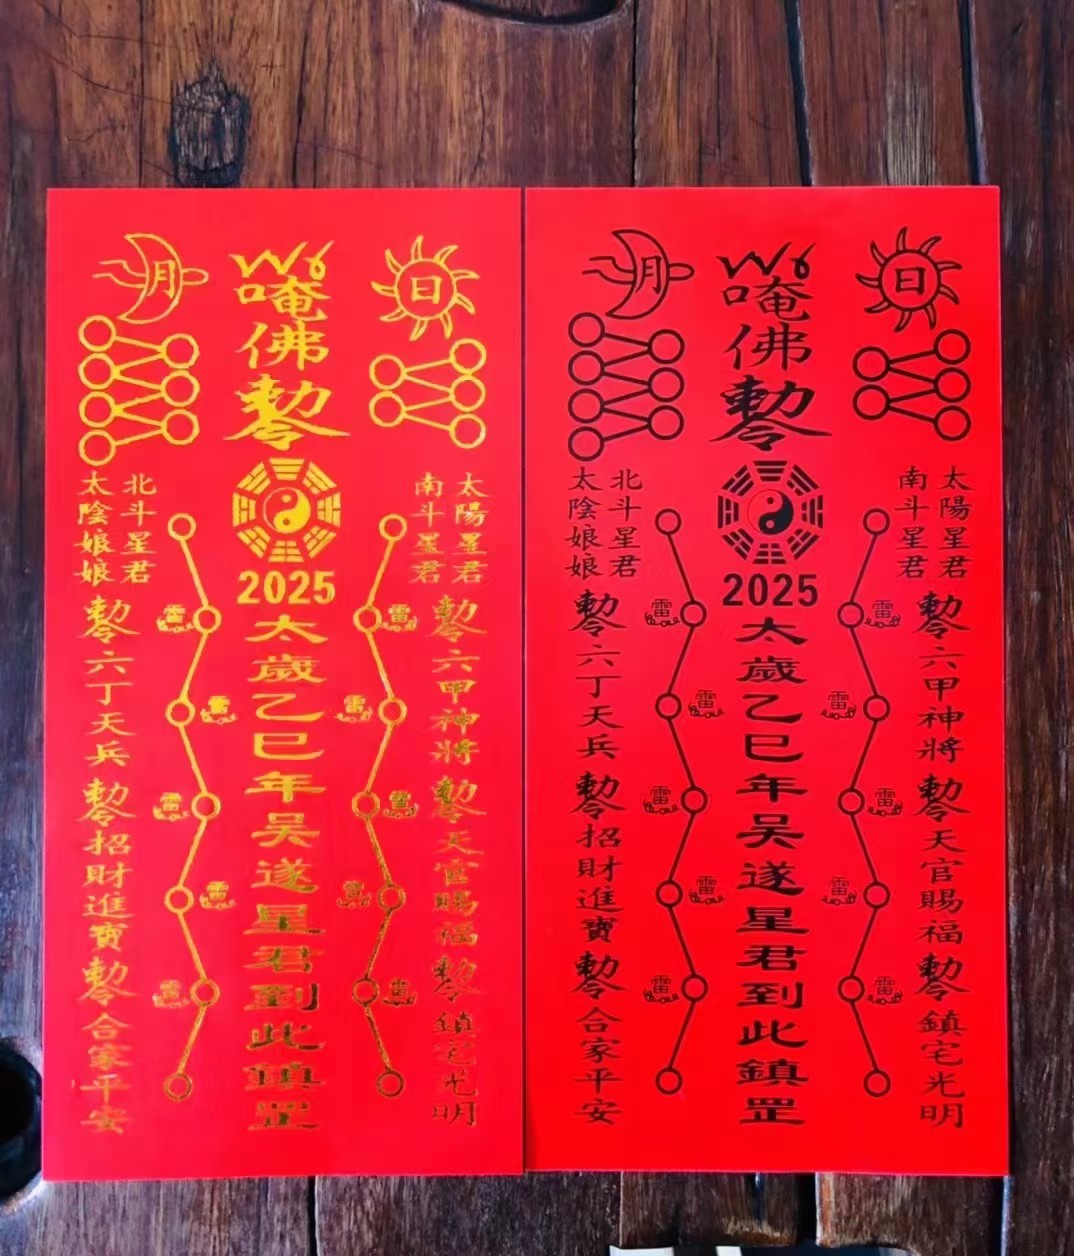 日
唵
佛
勅令
月
太陽星君
南斗星君
北斗星君
太陰娘娘
2025
太歲乙巳年吴遂星君到此鎮罡
勅令六甲神將勅令天官賜福勅令鎮宅光明
勅令六丁天兵勅令招財進寶勅令合家平安
雷
雷
雷
雷
雷
雷
雷
雷
雷
雷
日
唵
佛
勅令
月
太陽星君
南斗星君
北斗星君
太陰娘娘
2025
太歲乙巳年吴遂星君到此鎮罡
勅令六甲神將勅令天官賜福勅令鎮宅光明
勅令六丁天兵勅令招財進寶勅令合家平安
雷
雷
雷
雷
雷
雷
雷
雷
雷
雷